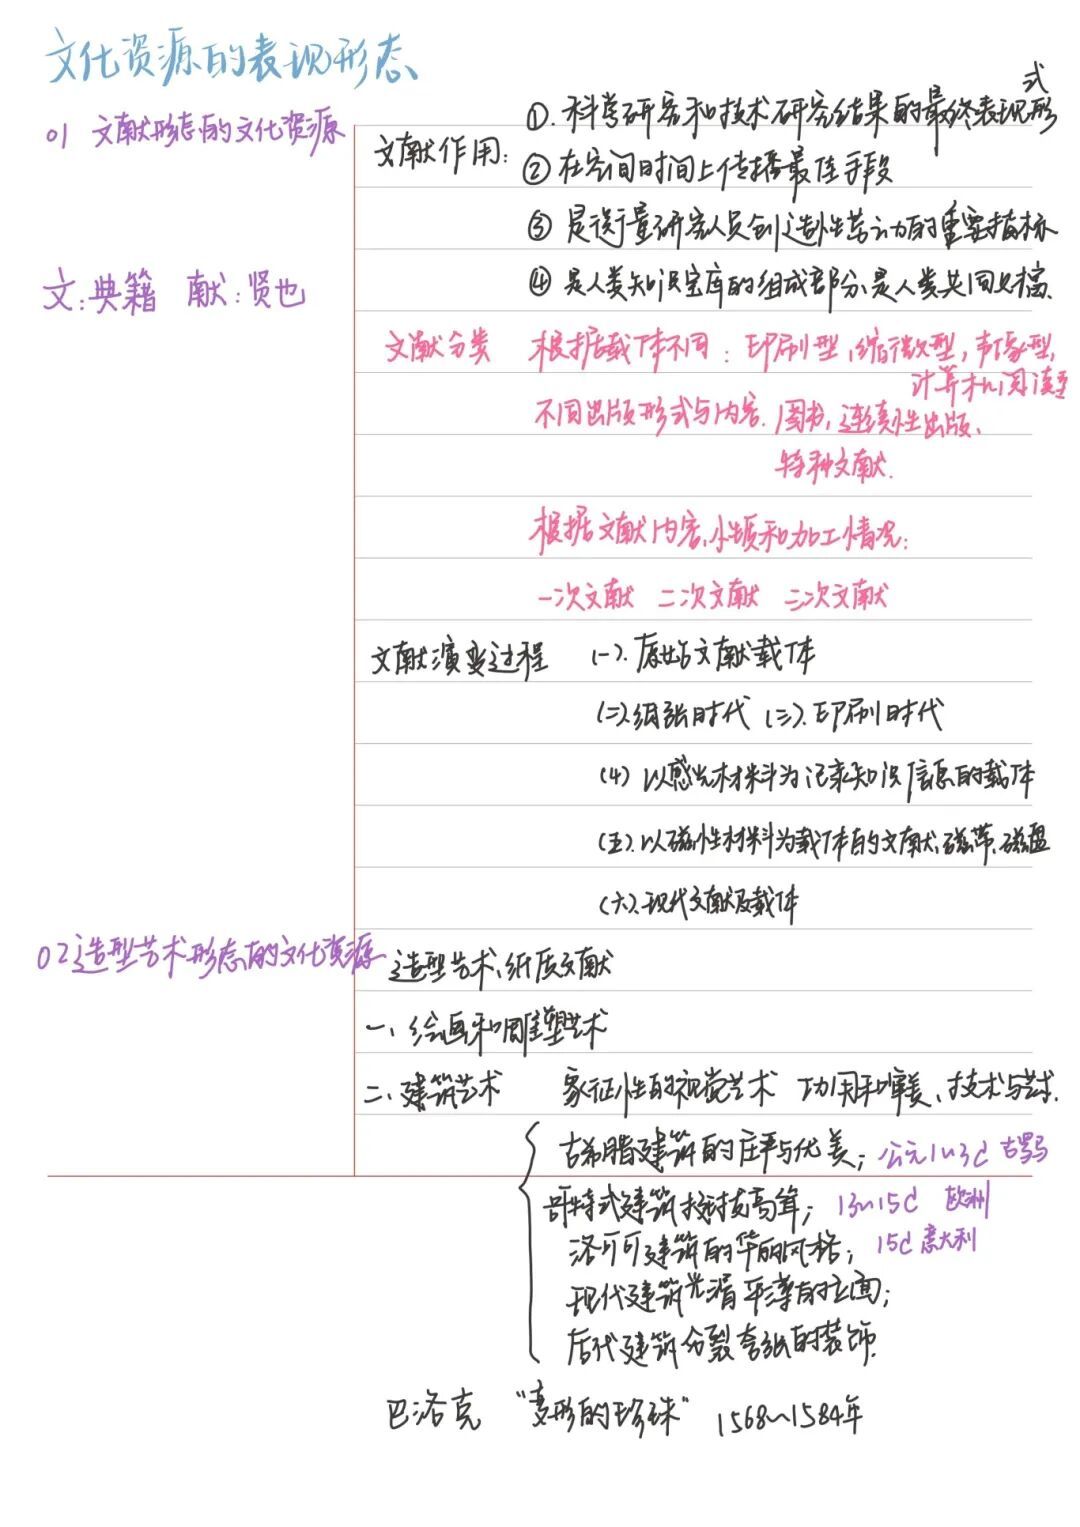 文化资源的表现形态
01 文献形态的文化资源
文:典籍 献:贤也
文献作用:
①.科学研究和技术研究结果的最终表现形式
②在空间时间上传播最佳手段
③ 是衡量研究人员创造性劳动的重要指标
④ 是人类知识宝库的组成部分、是人类共同财富.
文献分类 根据载体不同:印刷型,缩微型,声像型,
计算机阅读型
不同出版形式与内容.图书,连续性出版、
特种文献.
根据文献内容、性质和加工情况:
一次文献 二次文献 三次文献
文献演变过程 (一).原始文献载体
(二).纸张时代 (三).印刷时代
(4) 以感光材料为记录知识信息的载体
(五).以磁性材料为载体的文献、磁带、磁盘
(六).现代文献及载体
02造型艺术形态的文化资源
造型艺术、纸质文献
一、绘画和雕塑艺术
二、建筑艺术 象征性的视觉艺术 功用和审美、技术与艺术.
古希腊建筑的庄严与优美; 公元1~3C 古罗马
哥特式建筑挺拔高耸; 13~15C 欧洲
洛可可建筑的华丽风格; 15C意大利
现代建筑光滑平薄的立面;
后代建筑分裂夸张的装饰.
巴洛克 “变形的珍珠” 1568~1584年